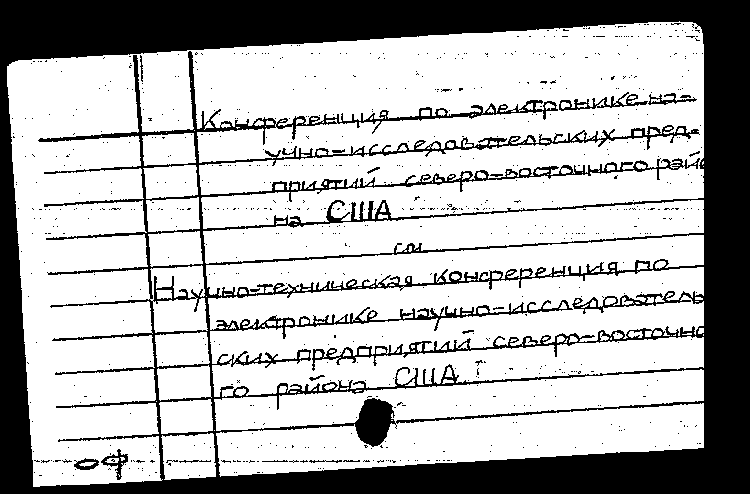 Конференция по электронике на-
учно-исследовательских пред-
приятий северо-восточного рай
на США
см
Научно-техническая конференция по
электронике научно-исследователь
ских предприятий северо-восточно
го района США
оф